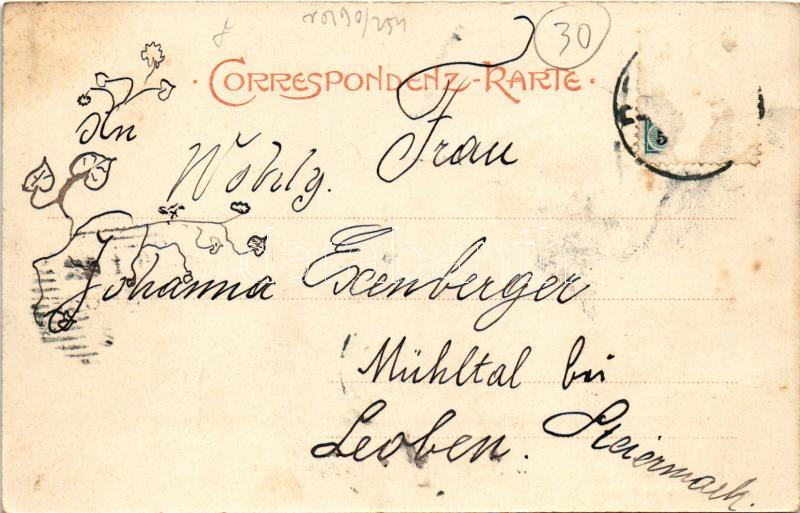 30
· CORRESPONDENZ-KARTE ·
An
Wohlg. Frau
Johanna Exenberger
Mühltal bei
Leoben. Steiermark.
5